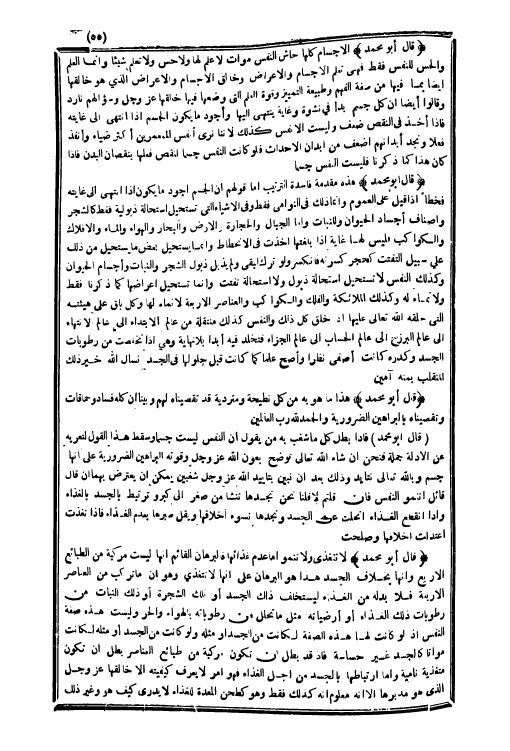 (٥٥)
﴿ قال أبو محمد ﴾ الاجسام كلها حاش النفس موات لا علم لها ولا حس ولا تعلم شيئا وانما العلم
والحس للنفس فقط فهى تعلم الاجسام والاعراض وخالق الاجسام والاعراض الذي هو خالقها
ايضا بما فيها من صفة الفهم وطبيعة التمييز وقوة العلم التى وضعها فيها خالقها عز وجل وسؤالهم بارد
وقالوا أيضا ان كل جسم بدأ فى نشوه وغاية ينتهى اليها وأجود ما يكون الجسم اذا انتهى الى غايته
فاذا أخذ فى النقص ضعف وليست الانفس كذلك لاننا نرى أنفس المعمرين أكثر ضياء وأنفذ
فعلا ونجد أبدانهم اضعف من ابدان الاحداث فلو كانت النفس جسما لنقص فعلها بنقصان البدن فاذا
كان هذا كما ذكرنا فليست النفس جسما
﴿ قال أبو محمد ﴾ هذه مقدمة فاسدة الترتيب اما قولهم ان الجسم اجود ما يكون اذا انتهى الى غايته
فخطأ اذا قيل على العموم وانما ذلك فى النوامي فقط وفى الاشياء التى تستحيل استحالة ذبولية فقط كالشجر
واصناف أجساد الحيوان والنبات وأما الجبال والحجارة والارض والبحار والهواء والماء والافلاك
والكواكب فليس لها غاية اذا بلغتها اخذت فى الانحطاط وانما يستحيل بعض ما يستحيل من ذلك
على سبيل التفتت كحجر كسرته فانكسر ولو ترك لبقى ولم يذبل ذبول الشجر والنبات وأجسام الحيوان
وكذلك النفس لا تستحيل استحالة ذبول ولا استحالة تفتت وانما تستحيل اعراضها كما ذكرنا فقط
ولا نماء له وكذلك الملائكة والفلك والكواكب والعناصر الاربعة لا نماء لها وكل باق على هيئته
التى خلقه الله تعالى عليها اذ خلق كل ذلك والنفس كذلك منتقلة من عالم الابتداء الى عالم الانتهاء
الى عالم البرزخ الى عالم الحساب الى عالم الجزاء فتخلد فيه أبدا بلا نهاية وهى اذا تخلصت من رطوبات
الجسد وكدره كانت أصفى نظرا وأصح علما كما كانت قبل حلولها فى الجسد نسأل الله خير ذلك
المنقلب بمنه آمين
﴿ قال أبو محمد ﴾ هذا ما هو به من كل نطيحة ومتردية قد تقصيناه لهم وبينا أن كله فساد وحماقات
وتقصيناه بالبراهين الضرورية والحمد لله رب العالمين
( قال ابو محمد ) فاذا بطل كل ما شغب به من يقول ان النفس ليست جسما وسقط هذا القول لتعريه
عن الادلة جملة فنحن ان شاء الله تعالى نوضح بعون الله عز وجل وقوته البراهين الضرورية على انها
جسم وبالله تعالى نتأيد وذلك بعد ان نبين بتأييد الله عز وجل شغبين يمكن ان يعترض بهما ان قال
قائل اتنمو النفس فان قلتم لا قلنا نحن نجدها تنشأ من صغر الى كبر وترتبط بالجسد بالغذاء
واذا انقطع الغذاء انحلت عن الجسد ونجدها تسوء أخلاقها ويقل صبرها بعدم الغذاء فاذا تغذت
اعتدلت اخلاقها وصلحت
﴿ قال أبو محمد ﴾ لا تتغذى ولا تنمو اما عدم غذائها فالبرهان القائم انها ليست مركبة من الطبائع
الاربع وانها بخلاف الجسد هذا هو البرهان على انها لا تتغذى وهو ان ما تركب من العناصر
الاربعة فلا بد له من الغذاء ليستخلف ذلك الجسد أو تلك الشجرة أو ذلك النبات من
رطوبات ذلك الغذاء أو أرضياته مثل ما تحلل من رطوباته بالهواء والحر وليست هذه صفة
النفس اذ لو كانت لها هذه الصفة لكانت من الجسد أو مثله ولو كانت من الجسد أو مثله لكانت
مواتا كالجسد غير حساسة فاذ قد بطل ان تكون مركبة من طبائع العناصر بطل ان تكون
متغذية نامية واما ارتباطها بالجسد من اجل الغذاء فهو امر لا يعرف كيفيته الا خالقها عز وجل
الذى هو مدبرها الا انه معلوم انه كذلك فقط وهو كطحن المعدة للغذاء لا يدرى كيف هو وغير ذلك